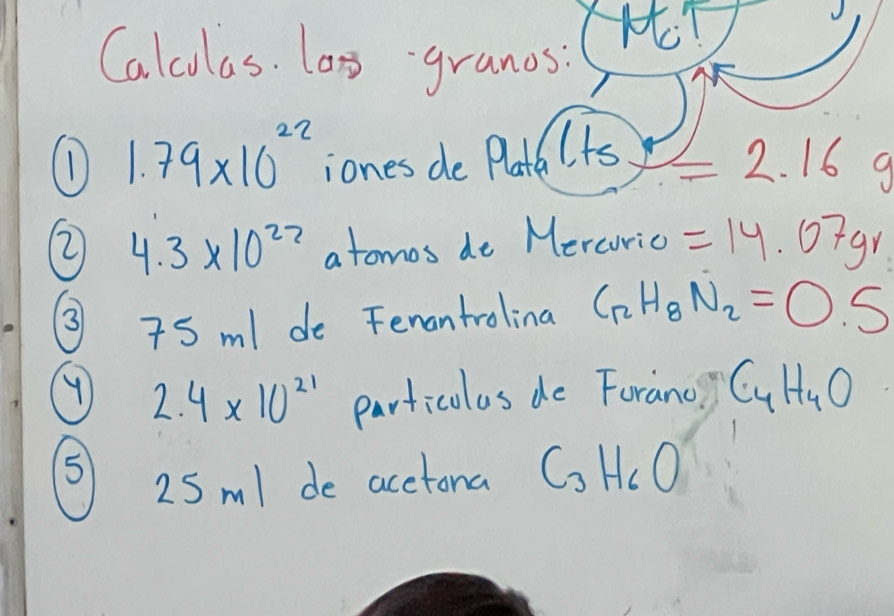 Mol
Calculas. las granos:
① 1.79x10²² iones de Plata Lts = 2.16 g
② 4.3 x 10²² atomos de Mercurio = 14.07gr
③ 75 ml de Fenantrolina C₁₂H₈N₂ = 0.5
④ 2.4 x 10²¹ particulas de Furano. C₄H₄O
⑤ 25 ml de acetona C₃H₆O